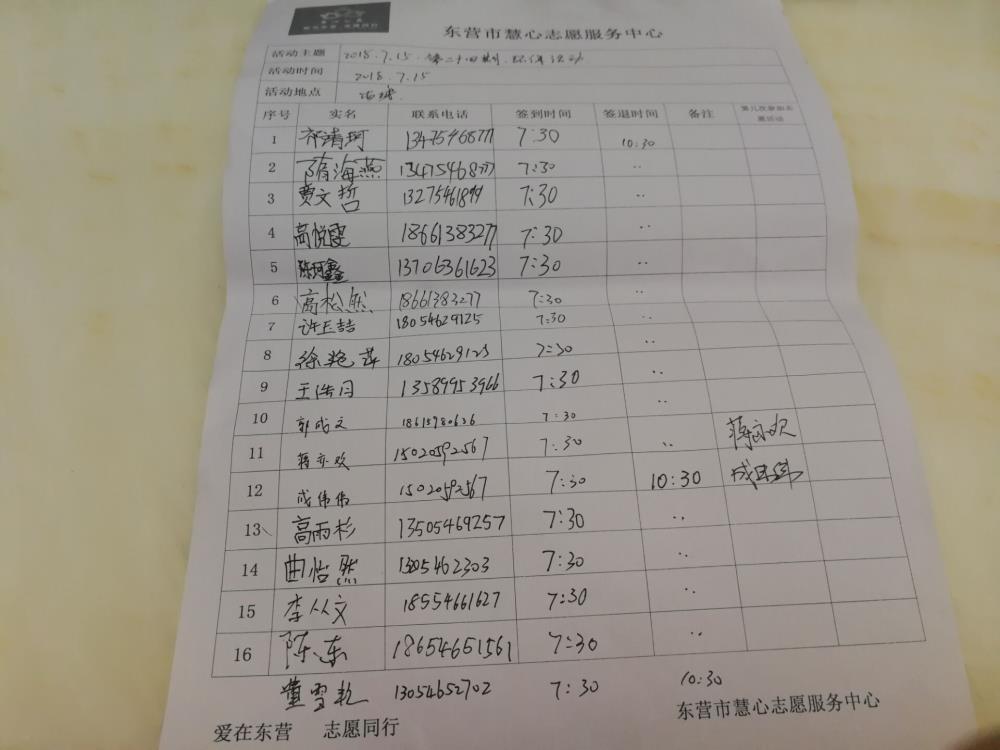 东营市慧心志愿服务中心
活动主题 2018.7.15. 第二十四期. 环保活动
活动时间 2018.7.15
活动地点
序号 实名 联系电话 签到时间 签退时间 备注 第几次参加志愿活动
1 祁清珂 13475468777 7:30 10:30
2 隋海燕 13475468777 7:30 ..
3 贾文哲 7:30 ..
4 高悦雯 18661383277 7:30 ..
5 陈珂鑫 13706361623 7:30
6 高松然 18661383277 7:30 ..
7 许王喆 18054629125 7:30 ..
8 徐艳萍 18054629125 7:30 ..
9 王浩 13589953966 7:30 ..
10 郭成文 18615980636 7:30 ..
11 蒋亦欢 15020592567 7:30 .. 蒋亦欢
12 成伟伟 15020592567 7:30 10:30
13 高雨杉 13505469257 7:30 ..
14 曲怡然 1305462303 7:30 ..
15 李从文 18554661627 7:30 ..
16 陈东 18654651561 7:30 ..
董雪乾 13054652702 7:30 10:30
爱在东营 志愿同行 东营市慧心志愿服务中心